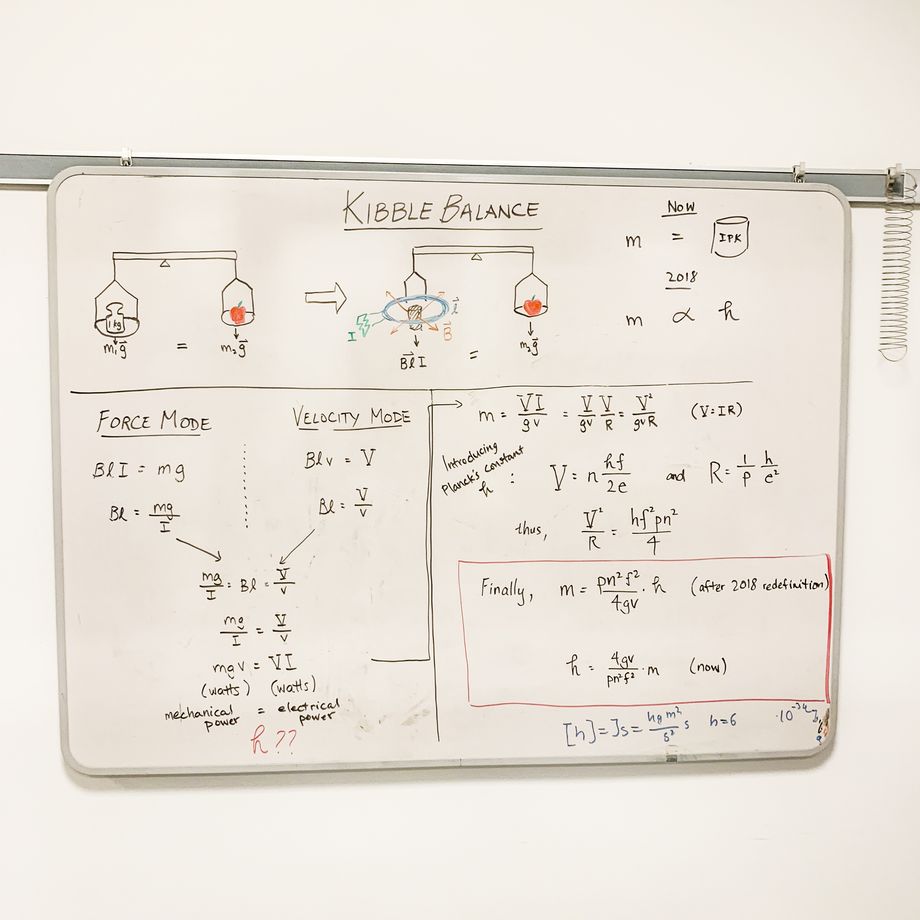 KIBBLE BALANCE
1 kg
m₁g⃗ = m₂g⃗
I
l⃗
B⃗
B⃗lI = m₂g⃗
Now
m = IPK
2018
m ∝ h
FORCE MODE
BlI = mg
Bl = mg/I
VELOCITY MODE
Blv = V
Bl = V/v
mg/I = Bl = V/v
mg/I = V/v
mgv = VI
(watts) (watts)
mechanical power = electrical power
h??
m = VI/gv = V/gv V/R = V²/gvR (V=IR)
Introducing
Planck's constant
h : V = n hf/2e and R = 1/p h/e²
thus, V²/R = hf²pn²/4
Finally, m = pn²f²/4gv · h (after 2018 redefinition)
h = 4gv/pn²f² · m (now)
[h] = Js = kg m²/s² s h=6 ·10⁻³⁴